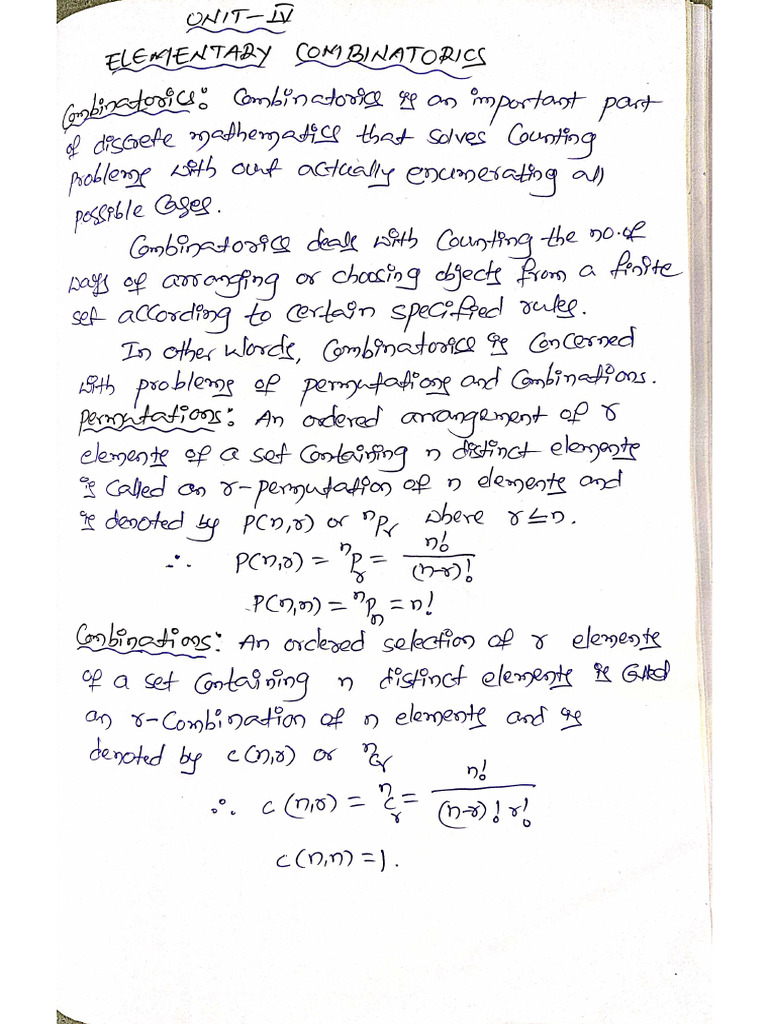 UNIT-IV
ELEMENTARY COMBINATORICS
Combinatorics: Combinatorics is an important part
of discrete mathematics that solves Counting
Problems with out actually enumerating all
possible Cases.
Combinatorics deals with Counting the no.of
ways of arranging or choosing objects from a finite
set according to certain specified rules.
In other words, Combinatorics is Concerned
with problems of permutations and Combinations.
Permutations: An ordered arrangement of r
elements of a set Containing n distinct elements
is called an r-permutation of n elements and
is denoted by P(n,r) or ⁿPᵣ where r≤n.
∴ P(n,r) = ⁿPᵣ = n!/(n-r)!
P(n,n) = ⁿPₙ = n!
Combinations: An ordered selection of r elements
of a set Containing n distinct elements is Called
an r-Combination of n elements and is
denoted by C(n,r) or ⁿCᵣ
∴ C(n,r) = ⁿCᵣ = n!/(n-r)! r!
C(n,n) = 1.